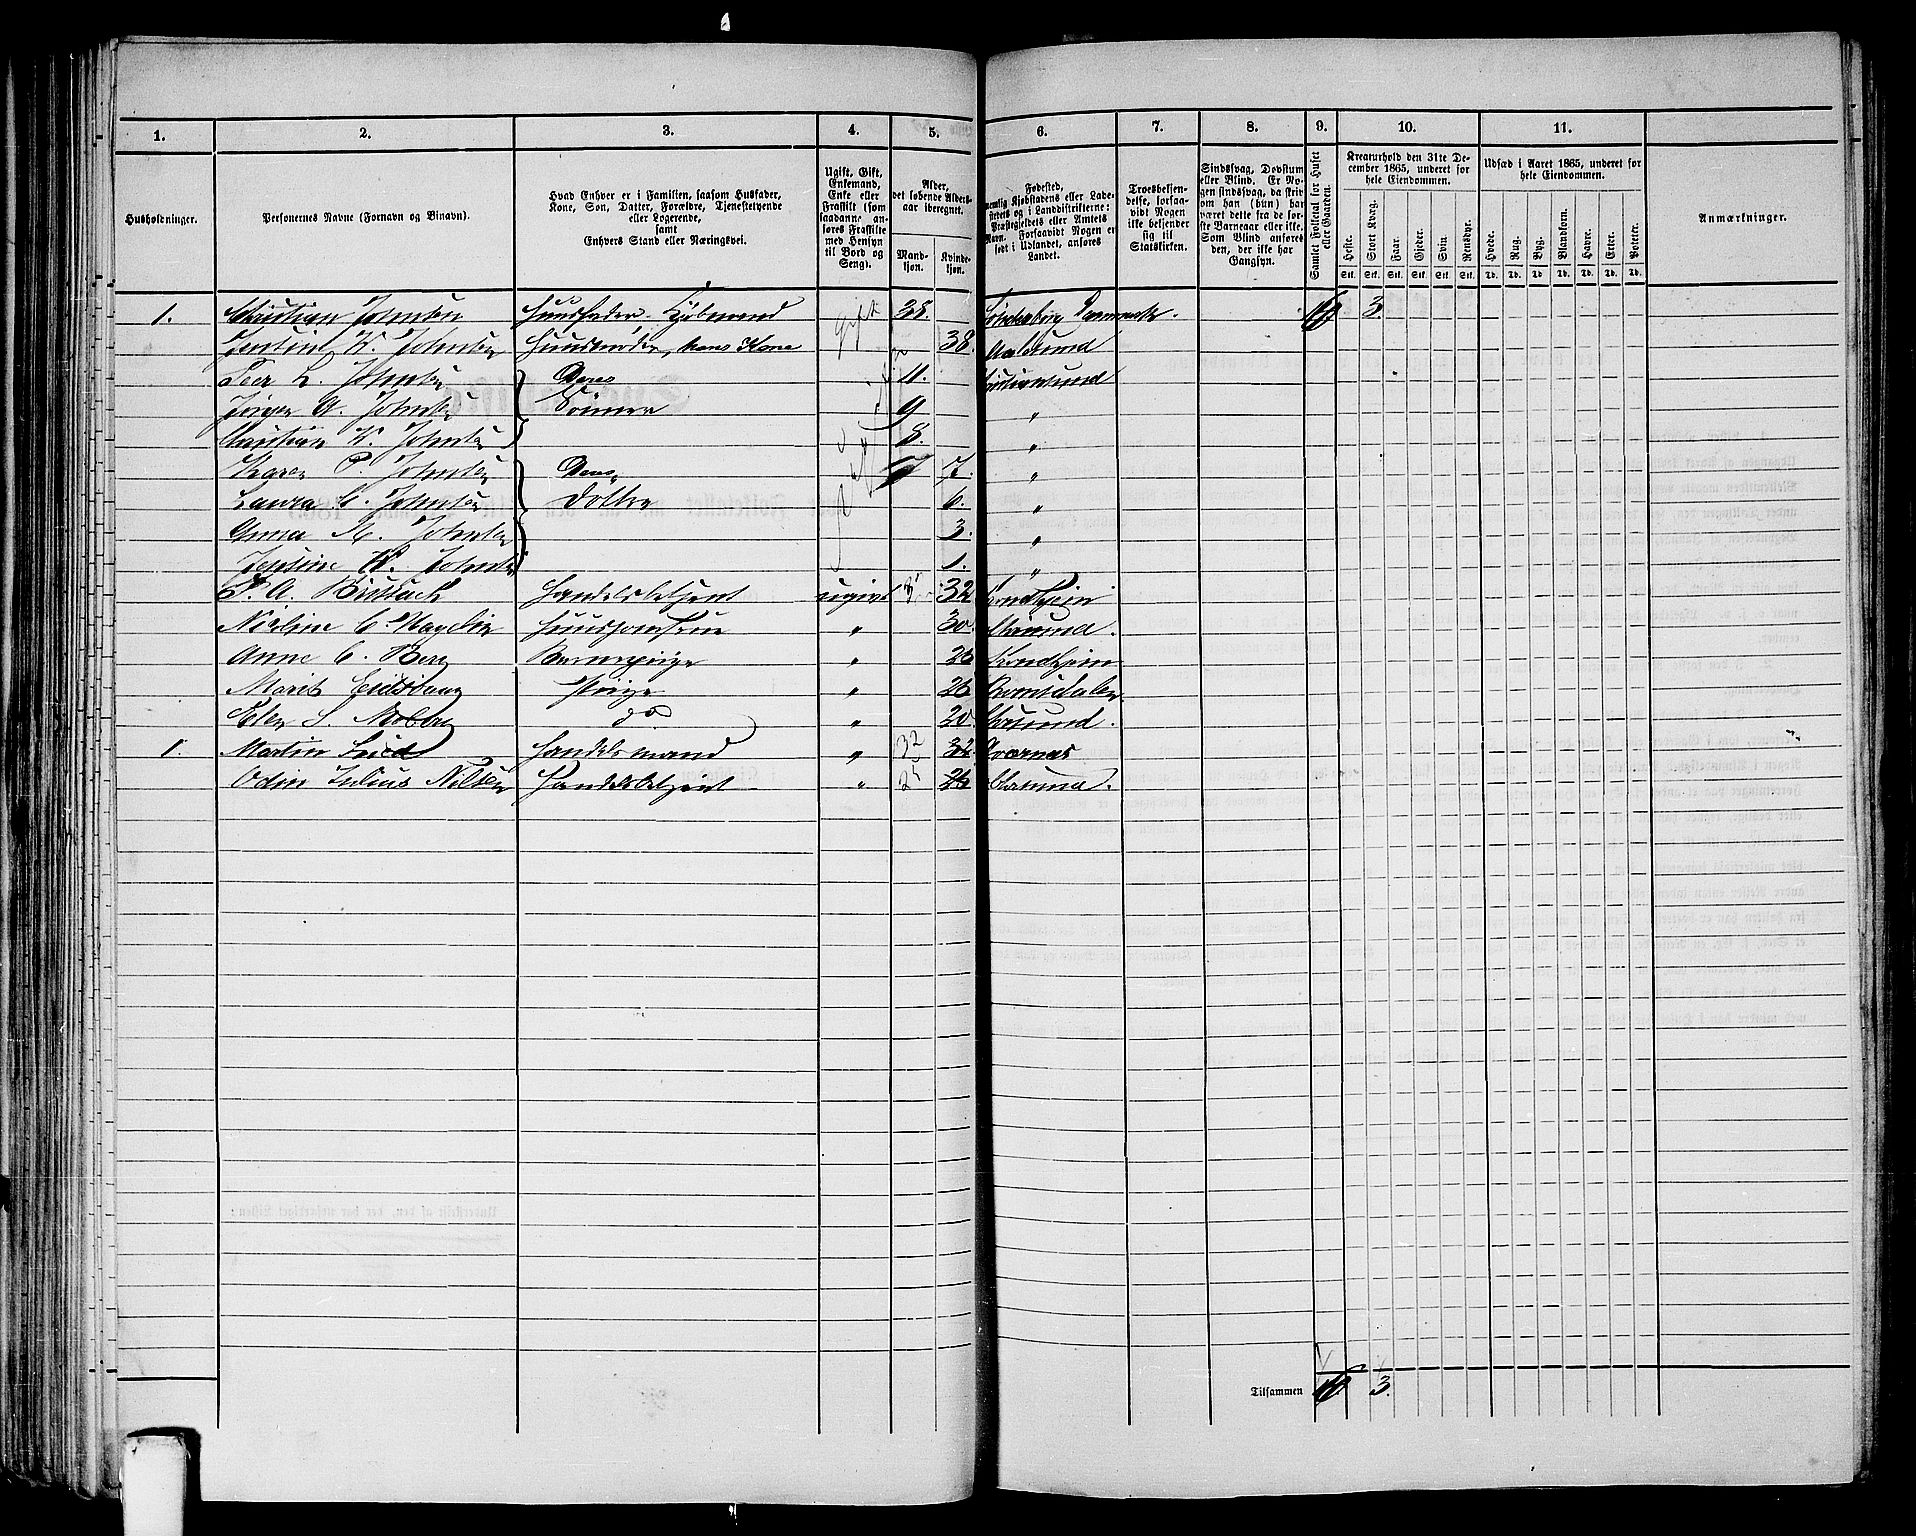 1. 2. 3. 4. 5. 6. 7. 8. 9. 10. 11.
Husholdninger.
Personernes Navne (Fornavn og Binavn).
Hvad Enhver er i Familien, saasom Husfader,
Kone, Søn, Datter, Forældre, Tjenestetyende
eller Logerende,
samt
Enhvers Stand eller Næringsvei.
Ugift, Gift,
Enkemand,
Enke eller
Fraskilt (som
saadanne an-
føres Fraskilte
med Hensyn
til Bord og
Seng).
Alder,
det løbende Alders-
aar iberegnet.
Mand-
kjøn.
Kvinde-
kjøn.
Fødested,
nemlig Kjøbstadens eller Lade-
stedets og i Landdistrikterne:
Præstegjeldets eller Amtets
Navn. Forsaavidt Nogen er
født i Udlandet, anføres
Landet.
Troesbekjen-
delse, forsaa-
vidt Nogen
ikke bekjender
sig til
Statskirken.
Sindssvag, Døvstum
eller Blind. Er No-
gen sindssvag, da skriv
om han (hun) har
været dette fra de før-
ste Barneaar eller ikke.
Som Blind anføres
den, der ikke har
Gangsyn.
Samlet Folketal for Huset
eller Gaarden.
Kreaturhold den 31te De-
cember 1865, underet for
hele Eiendommen.
Heste. Stort Kvæg. Faar. Gjeder. Svin. Rensdyr.
Stk. Stk. Stk. Stk. Stk. Stk.
Udsæd i Aaret 1865, underet for
hele Eiendommen.
Hvede. Rug. Byg. Blandkorn. Havre. Erter. Poteter.
Td. Td. Td. Td. Td. Td. Td.
Anmærkninger.
1. Christian Johnsen Huusfader. Kjøbmand gift 38. Sønderborg Danmark. 16 3.
Jensine K. Johnsen Huusmoder, hans Kone 38. Aalesund
Peer L. Johnsen Deres 11. Christiansund
Jørgen A. Johnsen Sønner 9 "
Christian K. Johnsen 8. "
Karen P. Johnsen Deres 7. "
Laura C. Johnsen Døttre 6. "
Anna M. Johnsen 3. "
Jensine K. Johnsen 1. "
P. A. Handelsbetjent ugivt 32 Trondhjem
Huusjomfrue " 30. Chrsund.
Anne C. Berg Barnepige " 26 Trondhjem
Marit Pige " 26 Romsdalen
Elen S. do " 20. Chrsund.
1. Martin Handelsmand " 32 32
Odin Julius Nilsen Handelsbetjent " 25 26 Chrsund.
Tilsammen 16 3.